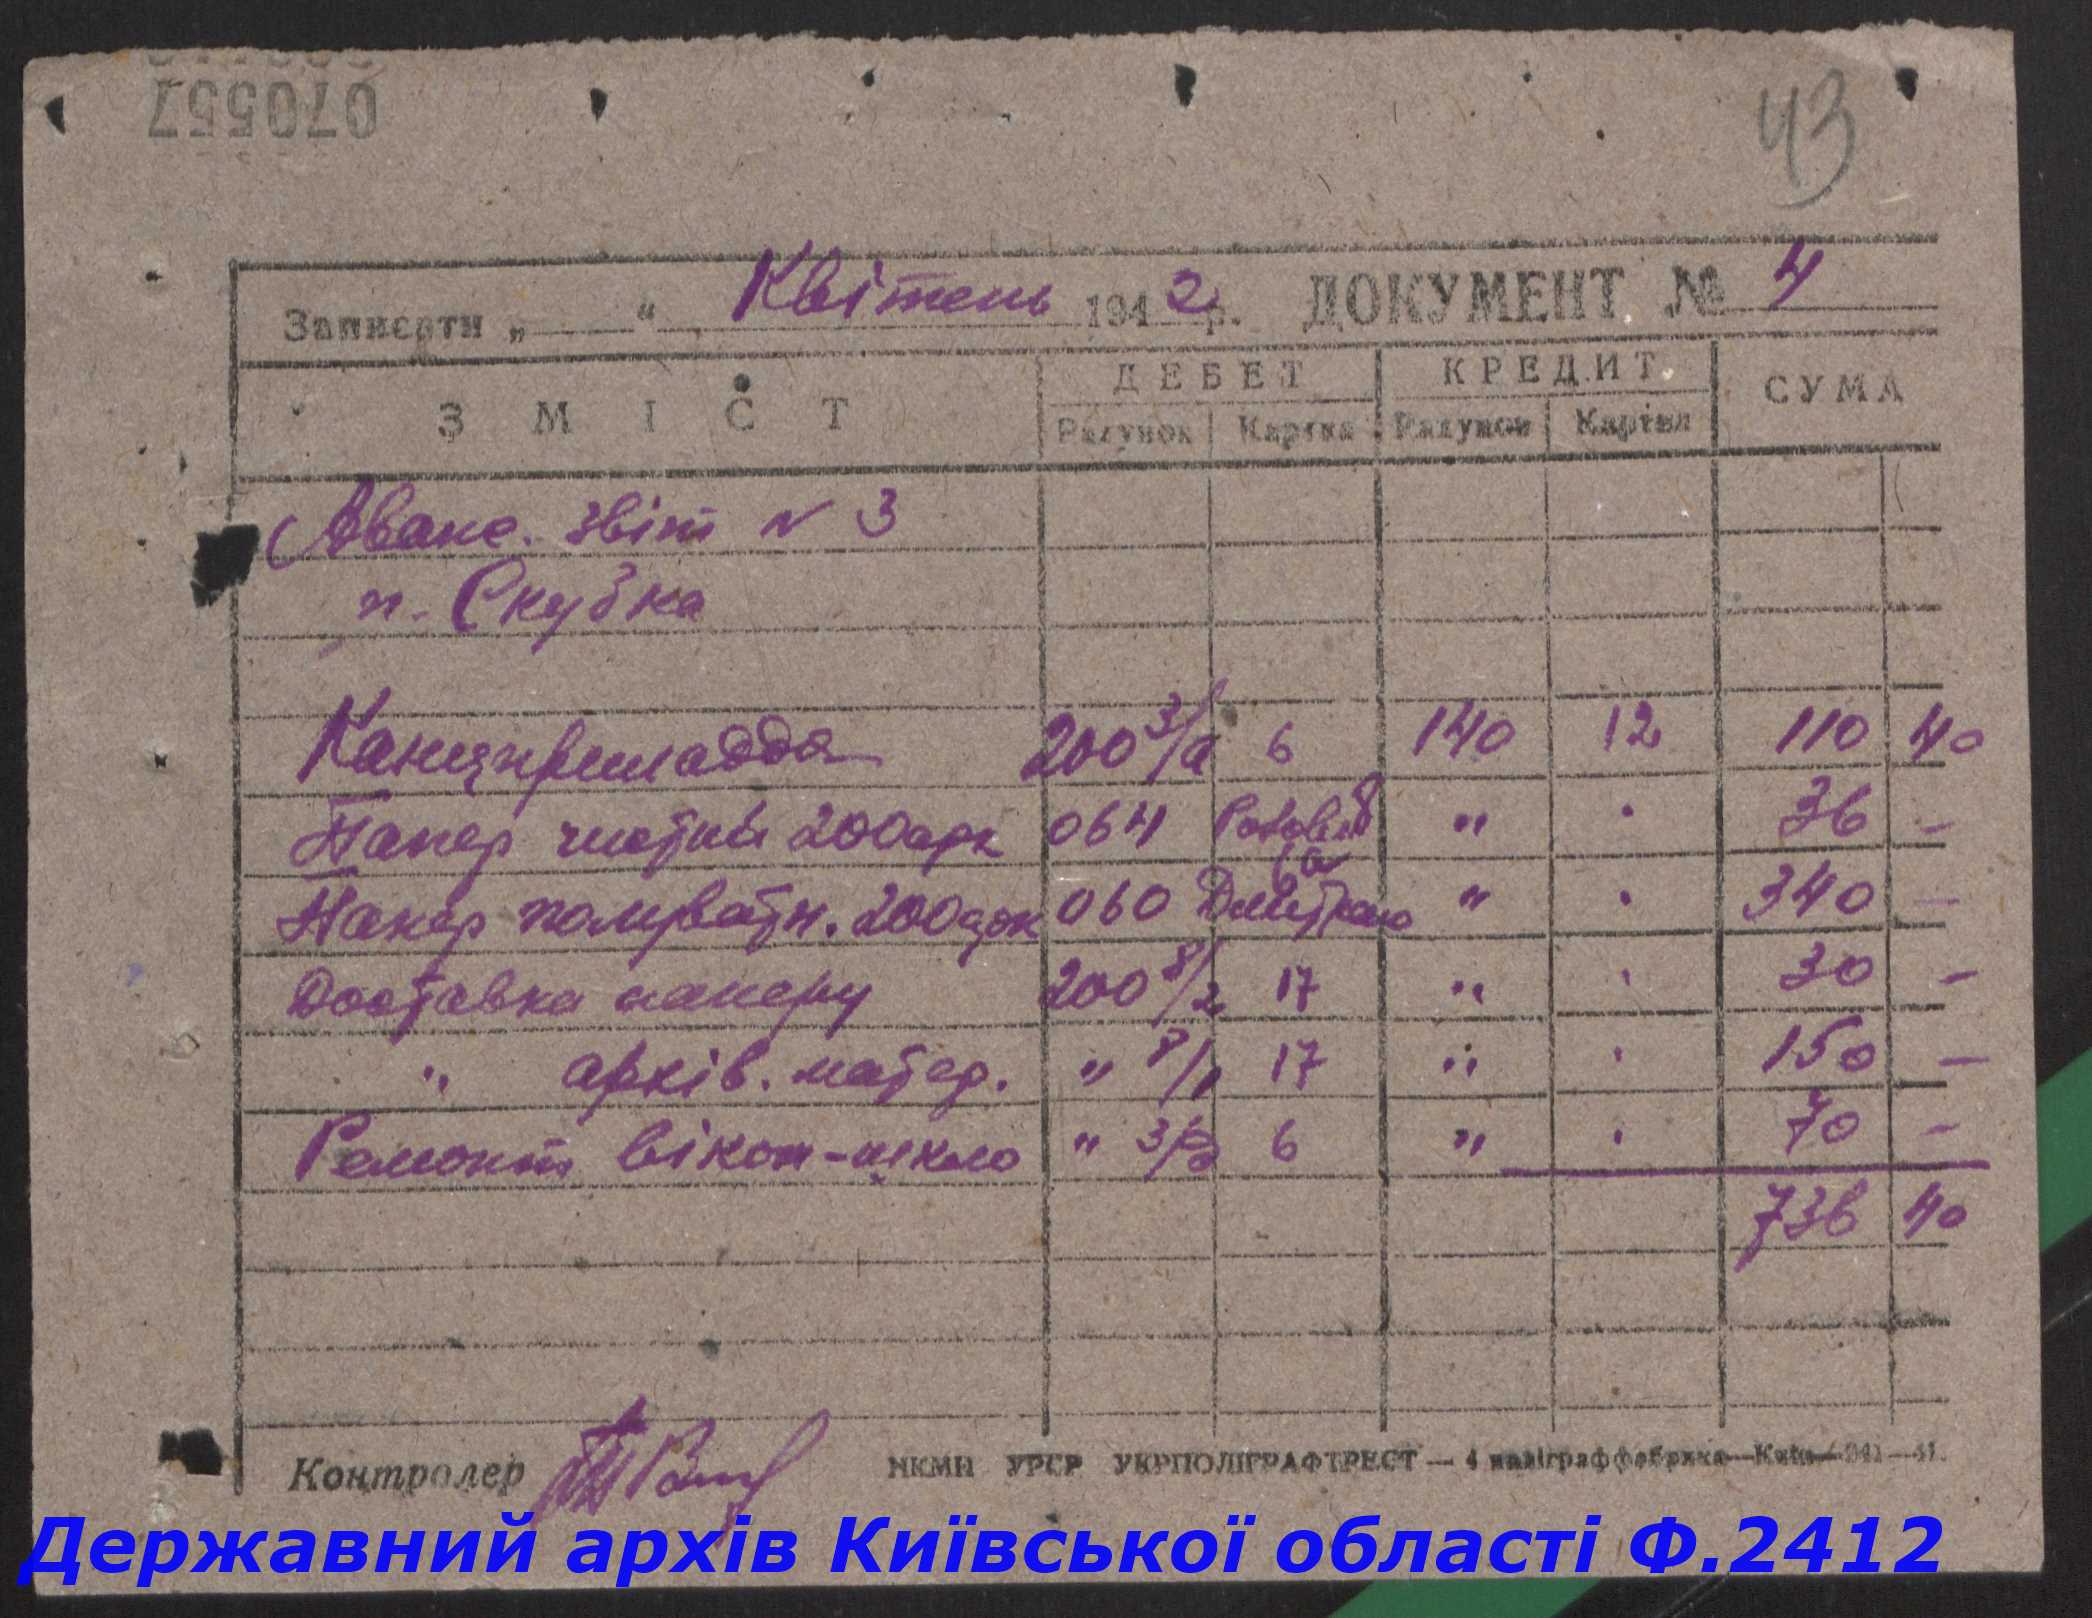 070557
43
Записати „ “ Квітень 1942 р. ДОКУМЕНТ № 4
ЗМІСТ ДЕБЕТ КРЕДИТ СУМА
Рахунок Картка Рахунок Картка
Аванс. звіт N 3
п. Скубка
Канцприладдя 200 3/а 6 140 12 110 40
Папер чистий 200арк 064 " " 36 —
Папер 200арк 060 " " 340 —
Доставка паперу 200 8/2 17 " " 30 —
" архів. матер. " 8/1 17 " " 150 —
Ремонт вікон-шкло " 3/в 6 " " 70 —
736 40
Контролер
НКМП УРСР УКРПОЛІГРАФТРЕСТ — 4 поліграффабрика — Київ
Державний архів Київської області Ф.2412